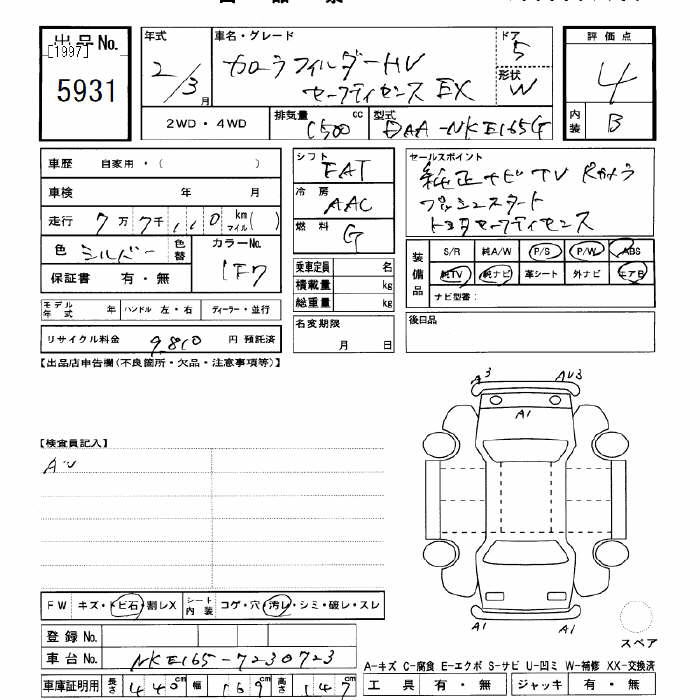 出品No.
[1997]
5931
年式 2/3月
車名・グレード カローラフィルダーHV
セーフティセンス EX
ドア 5
形状 W
評価点 4
内装 B
2WD・4WD
排気量 1500 cc
型式 DAA-NKE165G
車歴 自家用・( )
車検 年 月
走行 7万7千110 km マイル( )
色 シルバー 色替
カラーNo. 1F7
保証書 有・無
モデル年式 年 ハンドル 左・右 ディーラー・並行
リサイクル料金 9,810 円 預託済
シフト FAT
冷房 AAC
燃料 G
乗車定員 名
積載量 kg
総重量 kg
名変期限
月 日
セールスポイント
純正ナビTV Rカメラ
プッシュスタート
トヨタセーフティセンス
装備品
S/R 純A/W P/S P/W ABS
純TV 純ナビ 革シート 外ナビ エアB
ナビ型番:
後日品
【出品店申告欄(不良箇所・欠品・注意事項等)】
【検査員記入】
AU
A3 AU3
A1
A1 A1
スペア
FW キズ・トビ石・割レX
シート内装 コゲ・穴・汚レ・シミ・破レ・スレ
登録No.
車台No. NKE165-7230723
車庫証明用 長さ 440cm 幅 169cm 高さ 147cm
A-キズ C-腐食 E-エクボ S-サビ U-凹ミ W-補修 XX-交換済
工具 有・無 ジャッキ 有・無